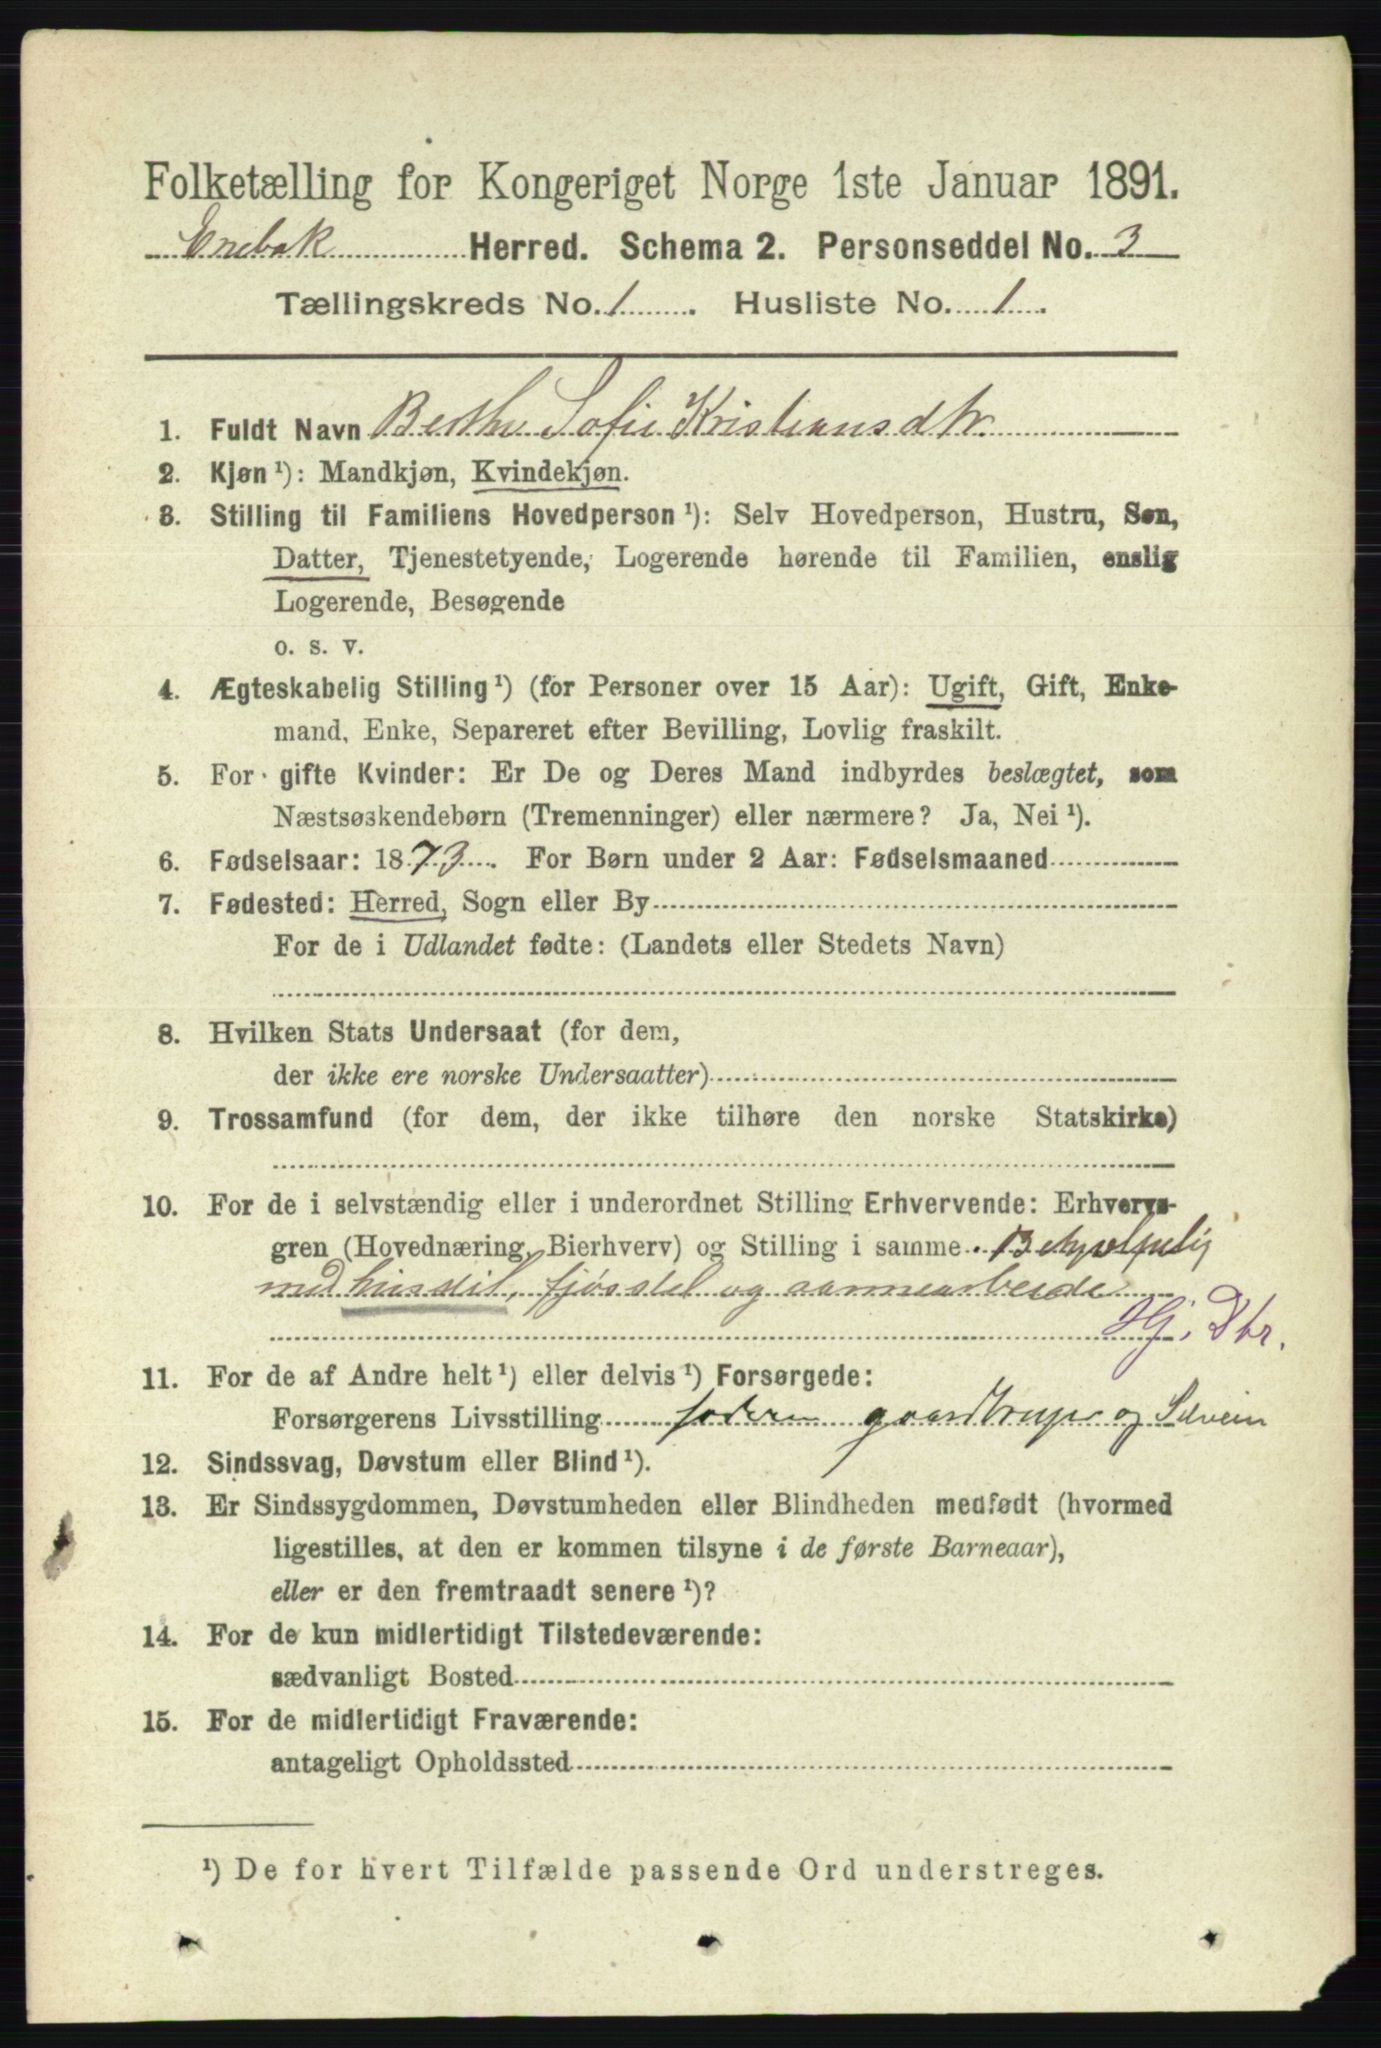 Folketælling for Kongeriget Norge 1ste Januar 1891.
Enebak Herred. Schema 2. Personseddel No. 3
Tællingskreds No. 1. Husliste No. 1.
1. Fuldt Navn Berthe Sofie Kristiansdtr.
2. Kjøn ¹): Mandkjøn, Kvindekjøn.
3. Stilling til Familiens Hovedperson ¹): Selv Hovedperson, Hustru, Søn,
Datter, Tjenestetyende, Logerende hørende til Familien, enslig
Logerende, Besøgende
o. s. v.
4. Ægteskabelig Stilling ¹) (for Personer over 15 Aar): Ugift, Gift, Enke-
mand, Enke, Separeret efter Bevilling, Lovlig fraskilt.
5. For gifte Kvinder: Er De og Deres Mand indbyrdes beslægtet, som
Næstsøskendebørn (Tremenninger) eller nærmere? Ja, Nei ¹).
6. Fødselsaar: 1873. For Børn under 2 Aar: Fødselsmaaned
7. Fødested: Herred, Sogn eller By
For de i Udlandet fødte: (Landets eller Stedets Navn)
8. Hvilken Stats Undersaat (for dem,
der ikke ere norske Undersaatter)
9. Trossamfund (for dem, der ikke tilhøre den norske Statskirke)
10. For de i selvstændig eller i underordnet Stilling Erhvervende: Erhvervs-
gren (Hovednæring, Bierhverv) og Stilling i samme Behjælpelig
med husstel, fjøsstel og aannearbeide
Hj. Dtr.
11. For de af Andre helt ¹) eller delvis ¹) Forsørgede:
Forsørgerens Livsstilling faderen gaardbruger og Selveier
12. Sindssvag, Døvstum eller Blind ¹).
13. Er Sindssygdommen, Døvstumheden eller Blindheden medfødt (hvormed
ligestilles, at den er kommen tilsyne i de første Barneaar),
eller er den fremtraadt senere ¹)?
14. For de kun midlertidigt Tilstedeværende:
sædvanligt Bosted
15. For de midlertidigt Fraværende:
antageligt Opholdssted
¹) De for hvert Tilfælde passende Ord understreges.